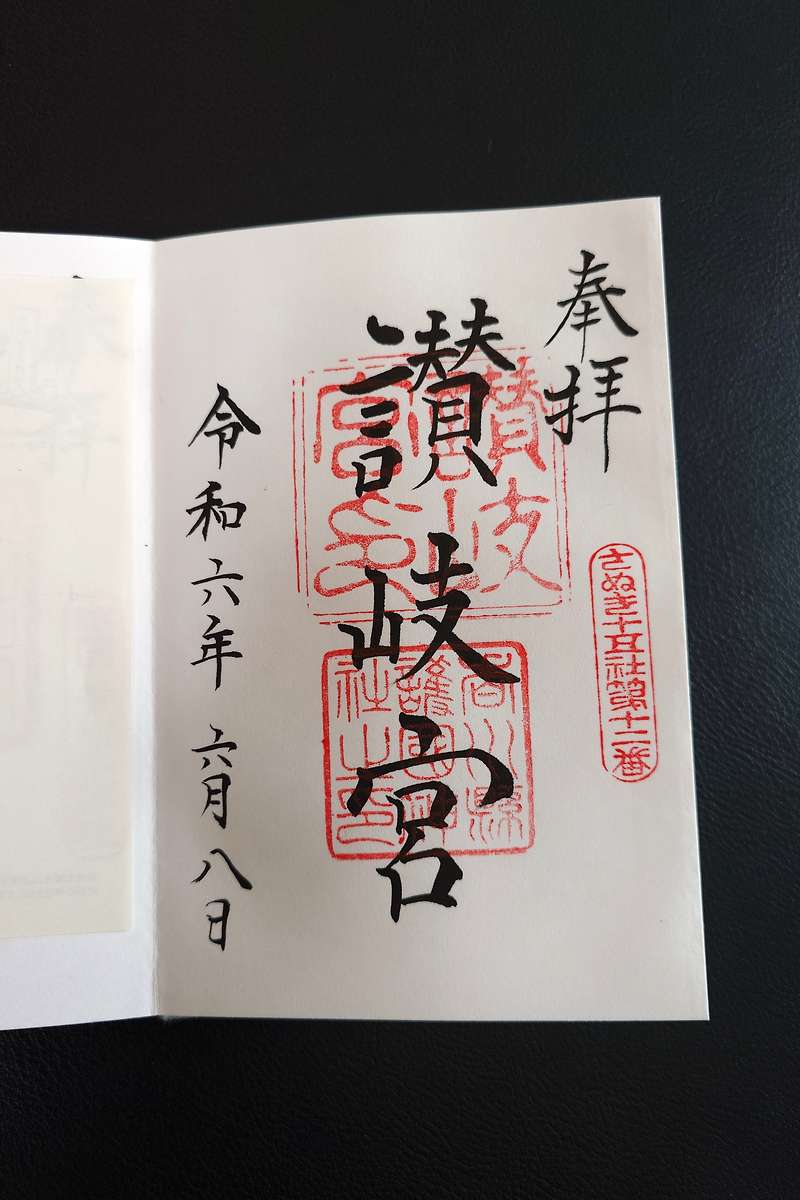 奉拝
さぬき十五社第十二番
讃岐宮
香川縣
護國神
社之印
令和六年 六月八日